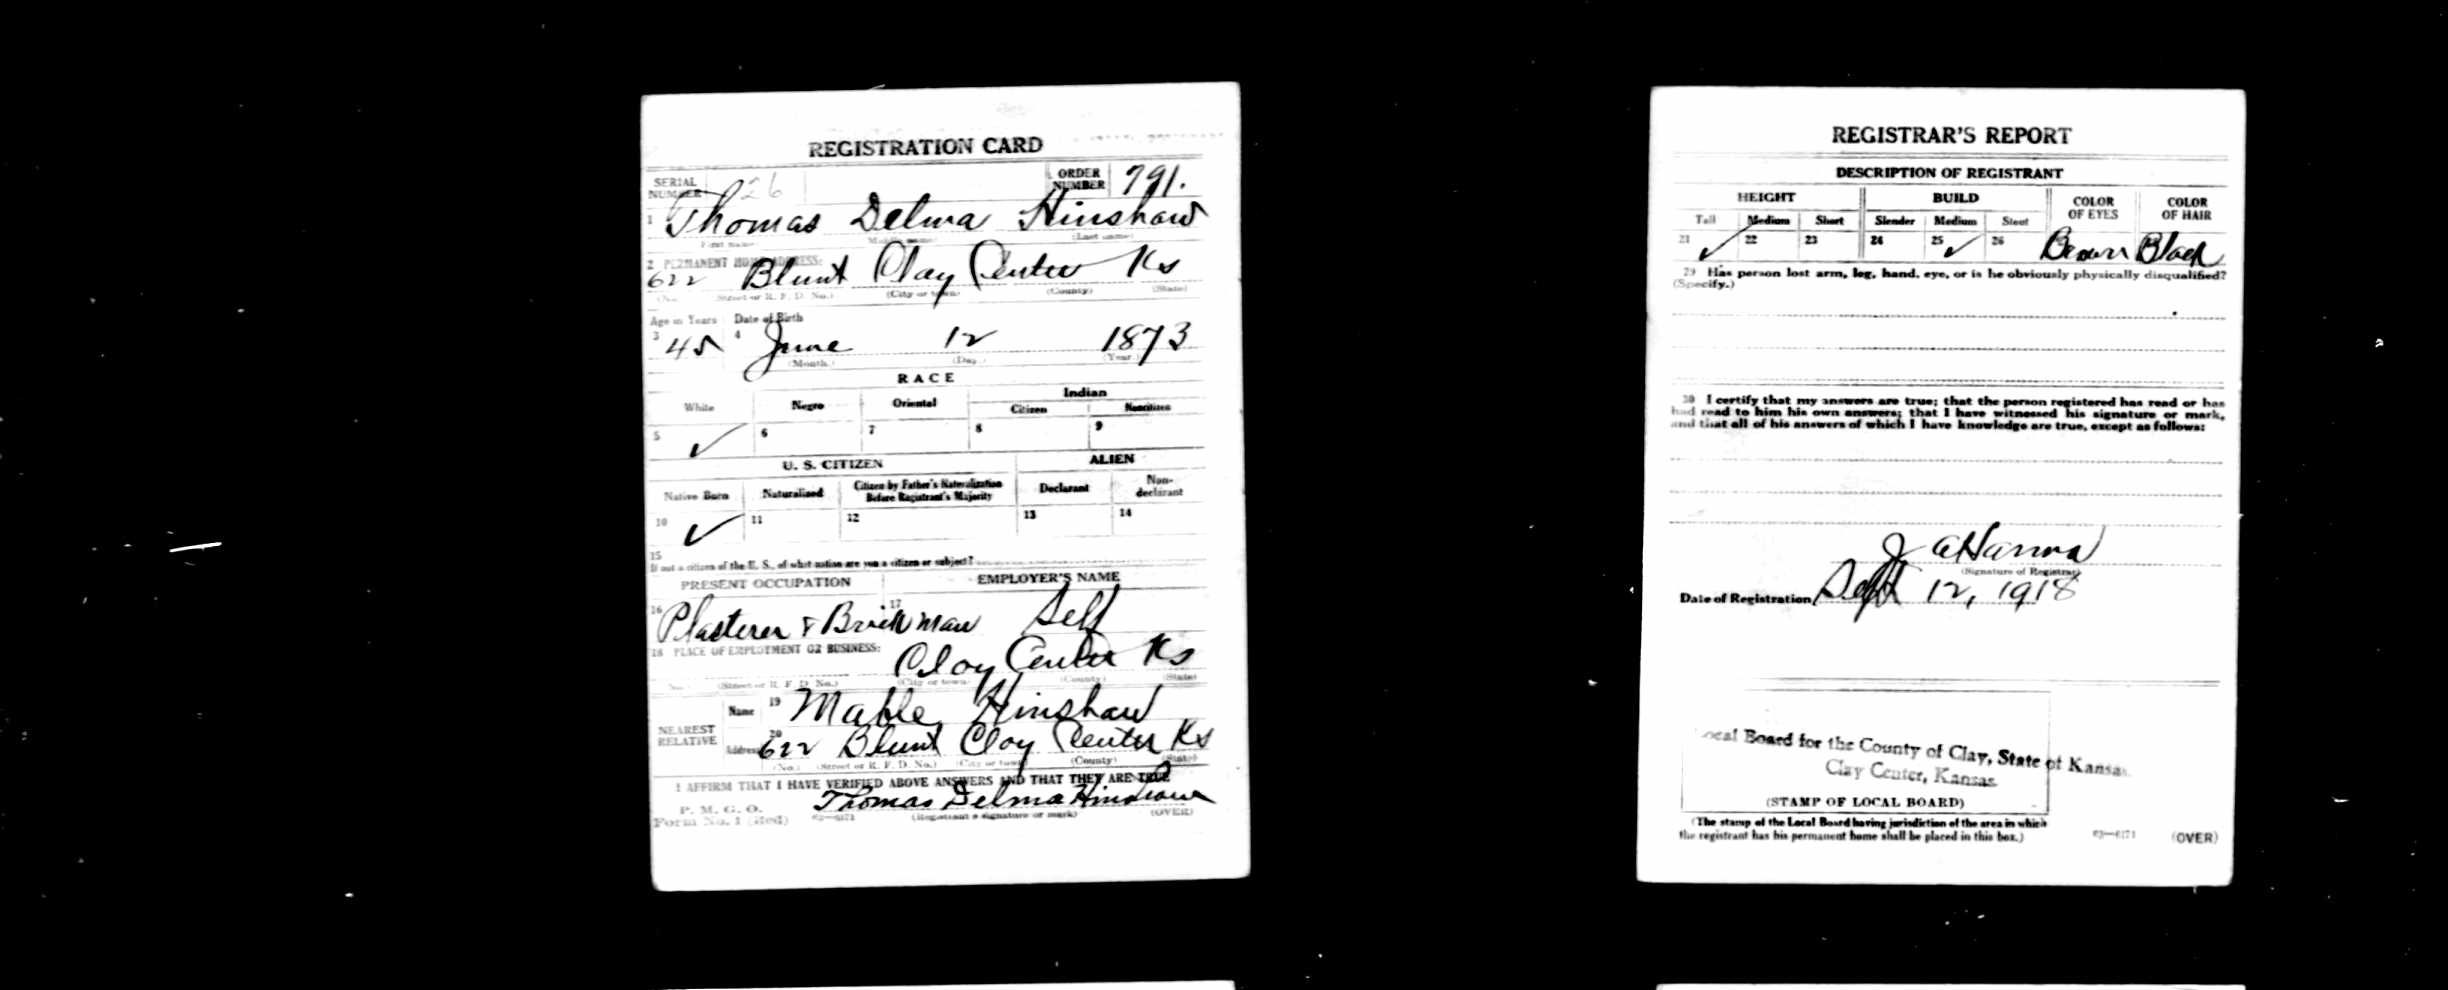 REGISTRATION CARD
SERIAL NUMBER 26 ORDER NUMBER 791.
1 Thomas Delma Hinshaw
(First name) (Middle name) (Last name)
2 PERMANENT HOME ADDRESS:
622 Blunt Clay Center Ks
(No.) (Street or R. F. D. No.) (City or town) (County) (State)
Age in Years Date of Birth
3 45 4 June 12 1873
(Month.) (Day.) (Year.)
RACE
White Negro Oriental Indian
Citizen Noncitizen
5 ✓ 6 7 8 9
U. S. CITIZEN ALIEN
Native Born Naturalized Citizen by Father's Naturalization Before Registrant's Majority Declarant Non-declarant
10 ✓ 11 12 13 14
15
If not a citizen of the U. S., of what nation are you a citizen or subject?
PRESENT OCCUPATION EMPLOYER'S NAME
16 Plasterer & Brickman 17 Self
18 PLACE OF EMPLOYMENT OR BUSINESS:
Clay Center Ks
(No.) (Street or R. F. D. No.) (City or town) (County) (State)
NEAREST RELATIVE
Name 19 Mable Hinshaw
Address 20 622 Blunt Clay Center Ks
(No.) (Street or R. F. D. No.) (City or town) (County) (State)
I AFFIRM THAT I HAVE VERIFIED ABOVE ANSWERS AND THAT THEY ARE TRUE
P. M. G. O.
Form No. 1 (Red) Thomas Delma Hinshaw
(Registrant's signature or mark) (OVER)
REGISTRAR'S REPORT
DESCRIPTION OF REGISTRANT
HEIGHT BUILD COLOR OF EYES COLOR OF HAIR
Tall Medium Short Slender Medium Stout
21 ✓ 22 23 24 25 ✓ 26 Brown Black
29 Has person lost arm, leg, hand, eye, or is he obviously physically disqualified?
(Specify.)
30 I certify that my answers are true; that the person registered has read or has
had read to him his own answers; that I have witnessed his signature or mark,
and that all of his answers of which I have knowledge are true, except as follows:
J A Hanna
(Signature of Registrar)
Date of Registration Sept 12, 1918
Local Board for the County of Clay, State of Kansas
Clay Center, Kansas.
(STAMP OF LOCAL BOARD)
(The stamp of the Local Board having jurisdiction of the area in which
the registrant has his permanent home shall be placed in this box.)
63—6171 (OVER)